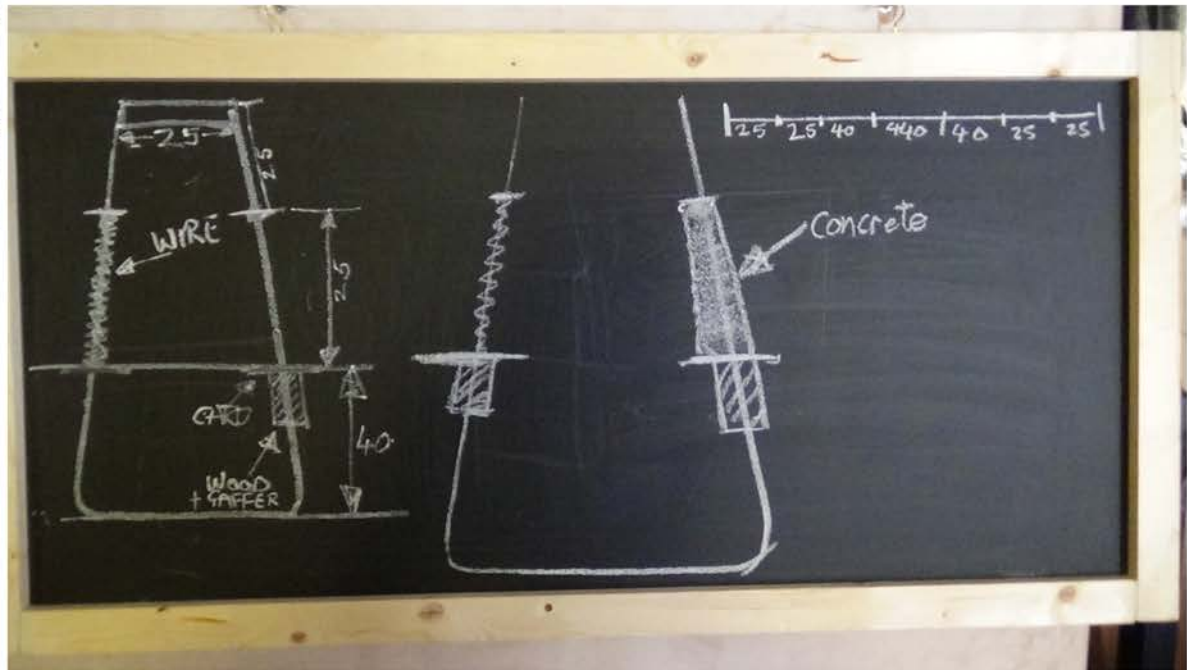 25
25
WIRE
25
CARD
40
WOOD
+ GAFFER
Concrete
25 25 40 440 40 25 25